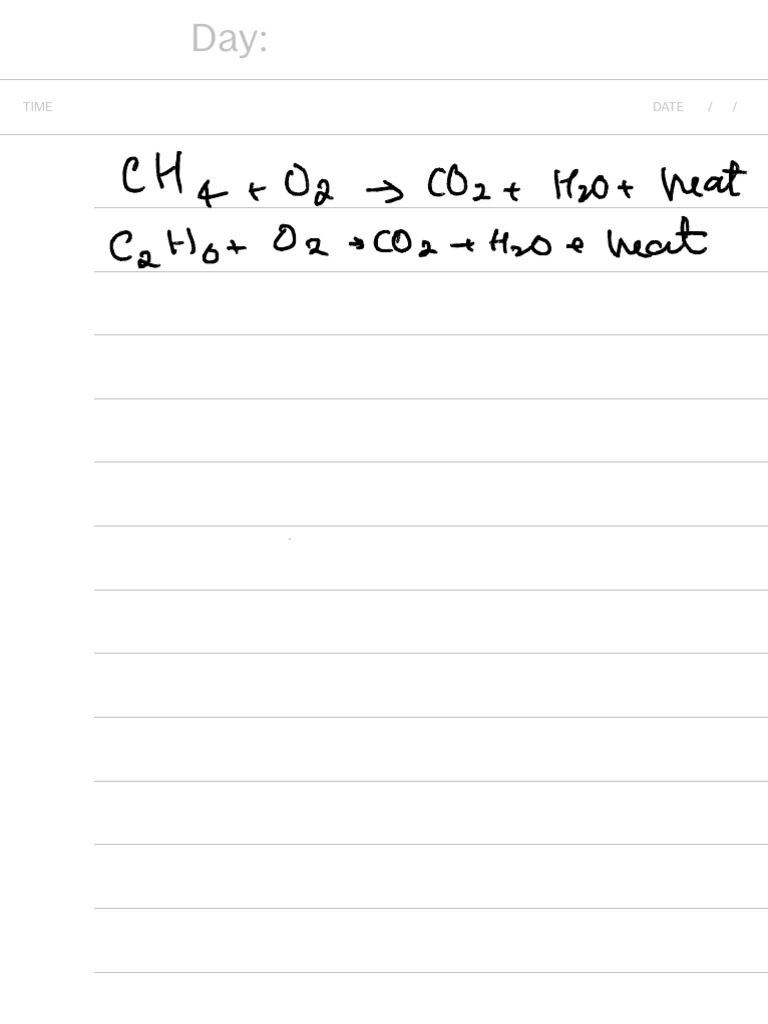 Day:
TIME DATE / /
CH₄ + O₂ → CO₂ + H₂O + heat
C₂H₆ + O₂ → CO₂ + H₂O + heat